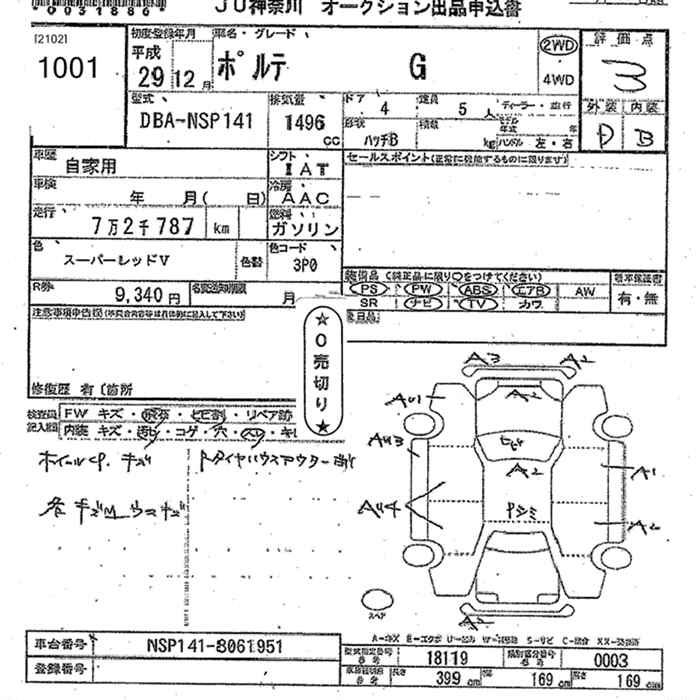 0031886
JU神奈川 オークション出品申込書
[2102]
1001
初度登録年月
平成
29 12月
車名・グレード
ポルテ G
2WD
4WD
評価点
3
型式
DBA-NSP141
排気量
1496
cc
ドア 4
定員 5人
ディーラー・並行
形状 ハッチB
積載 kg
モデル年式 年
ハンドル 左・右
外装 内装
D B
車歴
自家用
シフト
IAT
セールスポイント(正常に機能するものに限ります)
車検
年 月( 日)
冷房
AAC
走行
7万2千787 km
燃料
ガソリン
色
スーパーレッドV
色替
色コード
3P0
装備品(純正品に限り○をつけてください)
PS PW ABS エアB AW
SR ナビ TV カワ
有・無
R券
9,340円
名変
月
注意事項申告欄
☆0売切り★
修復歴 有〔箇所
検査員記入欄
FW キズ・ ・ヒビ割・リペア跡
内装 キズ・汚レ・コゲ・穴・スレ・キレ
ホイールCP. キズ
各 キズ
A3
A2
AU1
A2
AU3
ヒビ
A2
A1
AU4
A2
A2
スペア
A-キズ E-エクボ S-サビ
車台番号
NSP141-8061951
登録番号
型式指定番号
18119
類別区分番号
0003
長さ
399 cm
幅
169 cm
高さ
169 cm